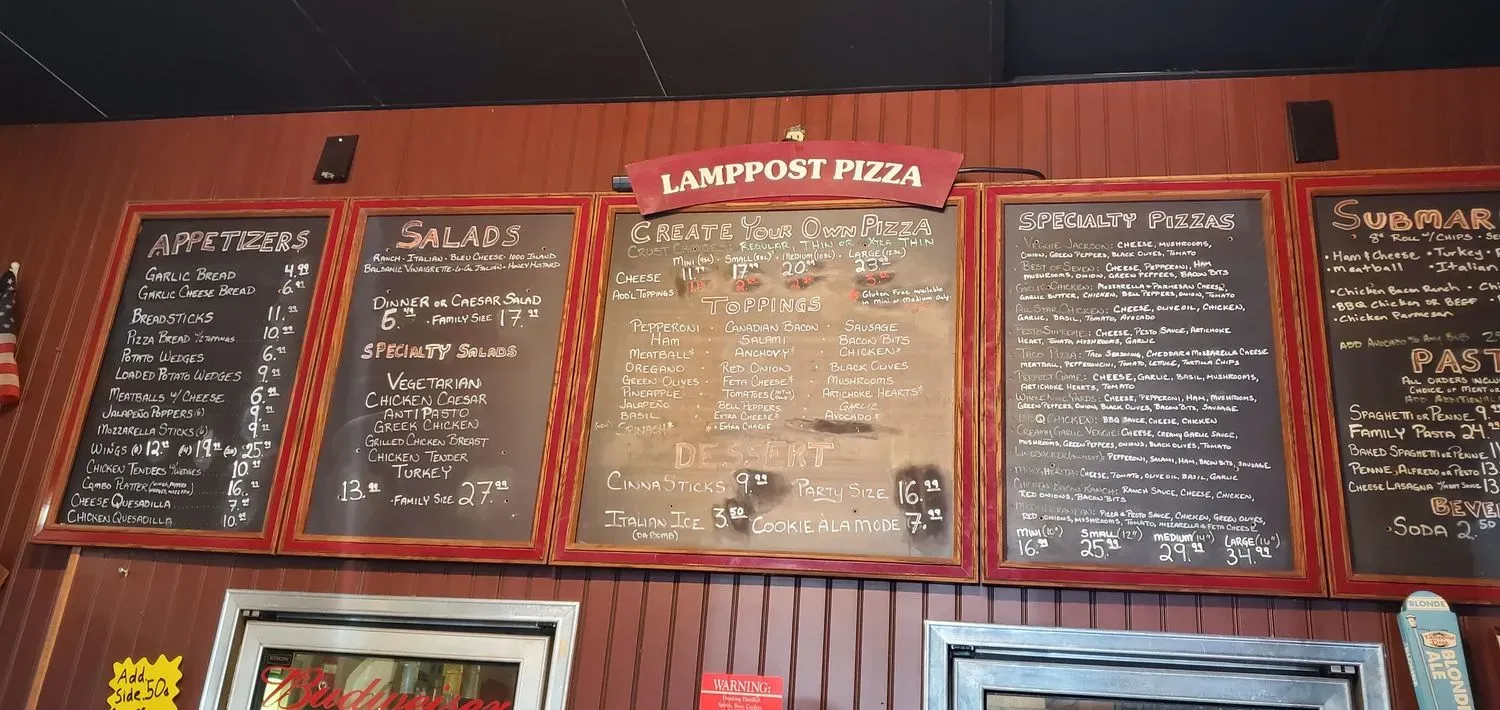 LAMPPOST PIZZA
APPETIZERS
GARLIC BREAD 4.99
GARLIC CHEESE BREAD 6.99
BREADSTICKS 11.99
PIZZA BREAD W/2 TOPPINGS 10.99
POTATO WEDGES 6.99
LOADED POTATO WEDGES 9.99
MEATBALLS W/ CHEESE 6.99
JALAPEÑO POPPERS (6) 9.99
MOZZARELLA STICKS (6) 9.99
WINGS 12.99 19.99 25.99
CHICKEN TENDERS W/WEDGES 10.99
COMBO PLATTER 16.99
CHEESE QUESADILLA 7.99
CHICKEN QUESADILLA 10.99
SALADS
RANCH · ITALIAN · BLEU CHEESE · 1000 ISLAND
BALSAMIC VINAIGRETTE · LO-CAL ITALIAN · HONEY MUSTARD
DINNER OR CAESAR SALAD
6.49 · FAMILY SIZE 17.99
SPECIALTY SALADS
VEGETARIAN
CHICKEN CAESAR
ANTIPASTO
GREEK CHICKEN
GRILLED CHICKEN BREAST
CHICKEN TENDER
TURKEY
13.99 · FAMILY SIZE 27.99
CREATE YOUR OWN PIZZA
CRUST CHOICES: REGULAR, THIN OR XTRA THIN
MINI · SMALL · MEDIUM · LARGE
CHEESE 11.99 17.99 20.99 23.99
ADD'L TOPPINGS
* Gluten Free available
in Mini or Medium Only
TOPPINGS
PEPPERONI · CANADIAN BACON · SAUSAGE
HAM · SALAMI · BACON BITS
MEATBALL* · ANCHOVY* · CHICKEN*
OREGANO · RED ONION · BLACK OLIVES
GREEN OLIVES · FETA CHEESE* · MUSHROOMS
PINEAPPLE · TOMATOES · ARTICHOKE HEARTS*
JALAPEÑO · BELL PEPPERS · GARLIC
BASIL · EXTRA CHEESE* · AVOCADO*
SPINACH* *=EXTRA CHARGE
DESSERT
CINNASTICKS 9.99 PARTY SIZE 16.99
ITALIAN ICE 3.50 COOKIE ALAMODE 7.99
(DA BOMB)
SPECIALTY PIZZAS
· VACHE JACKSON: CHEESE, MUSHROOMS,
ONION, GREEN PEPPERS, BLACK OLIVES, TOMATO
· BEST OF SEVEN: CHEESE, PEPPERONI, HAM
MUSHROOMS, ONION, GREEN PEPPERS, BACON BITS
· GARLIC CHICKEN: MOZZARELLA + PARMESAN CHEESE,
GARLIC BUTTER, CHICKEN, BELL PEPPERS, ONION, TOMATO
· ALL STAR CHICKEN: CHEESE, OLIVE OIL, CHICKEN,
GARLIC, BASIL, TOMATO, AVOCADO
· PESTO SUPREME: CHEESE, PESTO SAUCE, ARTICHOKE
HEART, TOMATO, MUSHROOMS, GARLIC
· TACO PIZZA: TACO SEASONING, CHEDDAR + MOZZARELLA CHEESE
MEATBALL, PEPPERONCINI, TOMATO, LETTUCE, TORTILLA CHIPS
· PERFECT GAME: CHEESE, GARLIC, BASIL, MUSHROOMS,
ARTICHOKE HEARTS, TOMATO
· WHOLE NINE YARDS: CHEESE, PEPPERONI, HAM, MUSHROOMS,
GREEN PEPPERS, ONION, BLACK OLIVES, BACON BITS, SAUSAGE
· BBQ CHICKEN: BBQ SAUCE, CHEESE, CHICKEN
· CREAMY GARLIC VEGGIE: CHEESE, CREAMY GARLIC SAUCE,
MUSHROOMS, GREEN PEPPERS, ONIONS, BLACK OLIVES, TOMATO
· LINEBACKER: PEPPERONI, SALAMI, HAM, BACON BITS, SAUSAGE
· MARGHERITA: CHEESE, TOMATO, OLIVE OIL, BASIL, GARLIC
· CHICKEN BACON RANCH: RANCH SAUCE, CHEESE, CHICKEN,
RED ONIONS, BACON BITS
· MEDITERRANEAN: PIZZA & PESTO SAUCE, CHICKEN, GREEN OLIVES,
RED ONIONS, MUSHROOMS, TOMATO, MOZZARELLA & FETA CHEESE
MINI (10") SMALL (12") MEDIUM (14") LARGE (16")
16.99 25.99 29.99 34.99
SUBMAR
8" ROLL W/ CHIPS
· Ham & Cheese · Turkey
· Meatball · Italian
· Chicken Bacon Ranch
· BBQ Chicken or Beef
· Chicken Parmesan
ADD AVOCADO TO ANY SUB
PAST
ALL ORDERS INCLU
CHOICE OF MEAT OR
ADD ADDITIONAL
SPAGHETTI OR PENNE 9.
FAMILY PASTA 24.
BAKED SPAGHETTI OR PENNE
PENNE, ALFREDO OR PESTO 13
CHEESE LASAGNA 13
BEVE
· SODA 2.50
Add
Side .50¢
Budweiser
WARNING:
BLONDE
Lamppost Pizza
BLONDE
ALE